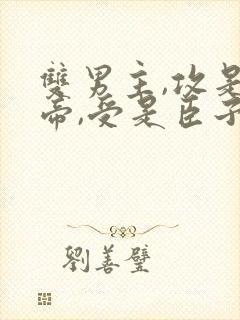 雙男主,攻是
帝,受是臣子
劉善璧